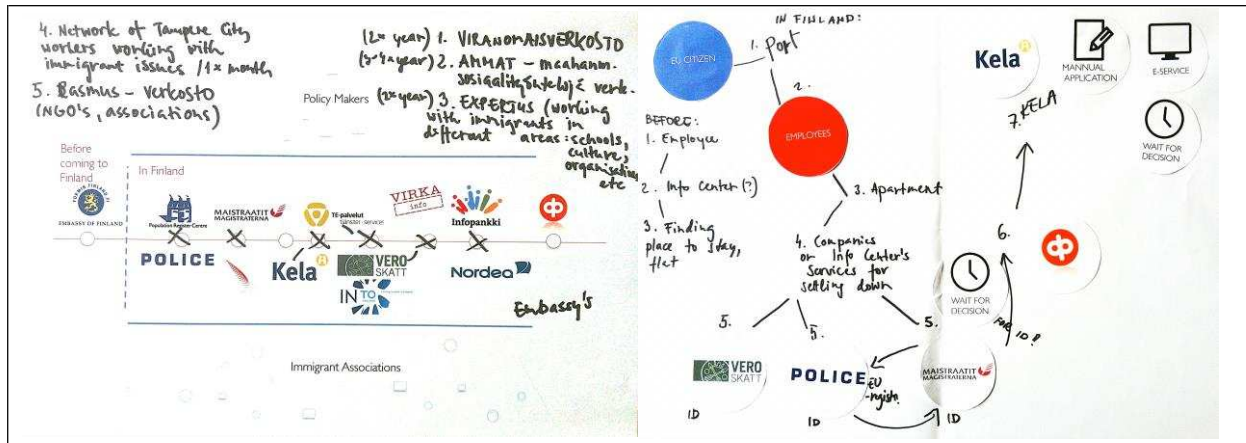 4. Network of Tampere City
workers working with
immigrant issues /1x month
5. Rasmus - verkosto
(NGO's, associations)
Policy Makers
(2x year) 1. VIRANOMAISVERKOSTO
(3-4x year) 2. AMMAT - maahanm.
verk.
(2x year) 3. EXPERTUS (working
with immigrants in
different areas: schools,
culture,
organisations
etc
Before
coming to
Finland
In Finland
EMBASSY OF FINLAND
Population Register Centre
MAISTRAATIT
MAGISTRATERNA
TE-palvelut
tjänster - services
VIRKA
info
Infopankki
POLICE
Kela
VERO
SKATT
INTO
Nordea
Embassy's
Immigrant Associations
EU CITIZEN
IN FINLAND:
1. Port
2.
EMPLOYEES
BEFORE:
1. Employee
2. Info Center (?)
3. Finding
place to stay,
flat
3. Apartment
4. Companies
or Info Center's
Services for
settling down
5.
5.
5.
VERO
SKATT
ID
POLICE
ID
EU
-registr.
MAISTRAATIT
MAGISTRATERNA
ID
WAIT FOR
DECISION
6.
FOR ID?
7. KELA
Kela
MANNUAL
APPLICATION
E-SERVICE
WAIT FOR
DECISION